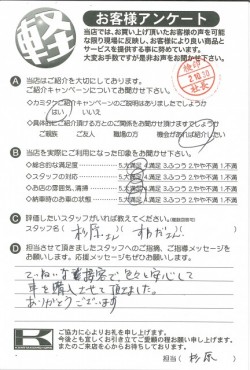 軽
お客様アンケート
当店では、お買い上げ頂いたお客様の声を可能
な限り現場に反映し、お客様により良い商品と
サービスを提供する事に努めています。
大変お手数ですが是非お声をお聞かせ下さい。
A 当店はご紹介を大切にしております。
ご紹介キャンペーンについてお聞かせ下さい。
◇カミタケご紹介キャンペーンのご説明はありましたでしょうか
はい いいえ
◇具体的にご紹介頂ける方とのご関係をお聞かせ頂けますでしょうか
ご親族 ご友人 職場の方 機会があれば紹介したい
B 当店を実際にご利用になった印象をお聞かせ下さい。
◇総合的な満足度 5.大満足 4.満足 3.ふつう 2.やや不満 1.不満
◇スタッフの対応 5.大満足 4.満足 3.ふつう 2.やや不満 1.不満
◇お店の雰囲気、清潔 5.大満足 4.満足 3.ふつう 2.やや不満 1.不満
◇納車時のお車の状態 5.大満足 4.満足 3.ふつう 2.やや不満 1.不満
C 評価したいスタッフがいれば教えてください。(複数回答可)
スタッフ名( 杉原さん )( )
D 担当させて頂きましたスタッフへのご指摘、ご指導メッセージを
お願いします。応援メッセージもぜひお願いします。
ていねいな接客で色々安心して
車を購入させて頂きました。
ありがとうございます
ご協力に心よりお礼を申し上げます。
今後とも宜しくお引き立てご愛顧の程お願い申し上げます。
またのご来店を心からお待ちしております。
担当( 杉原 )